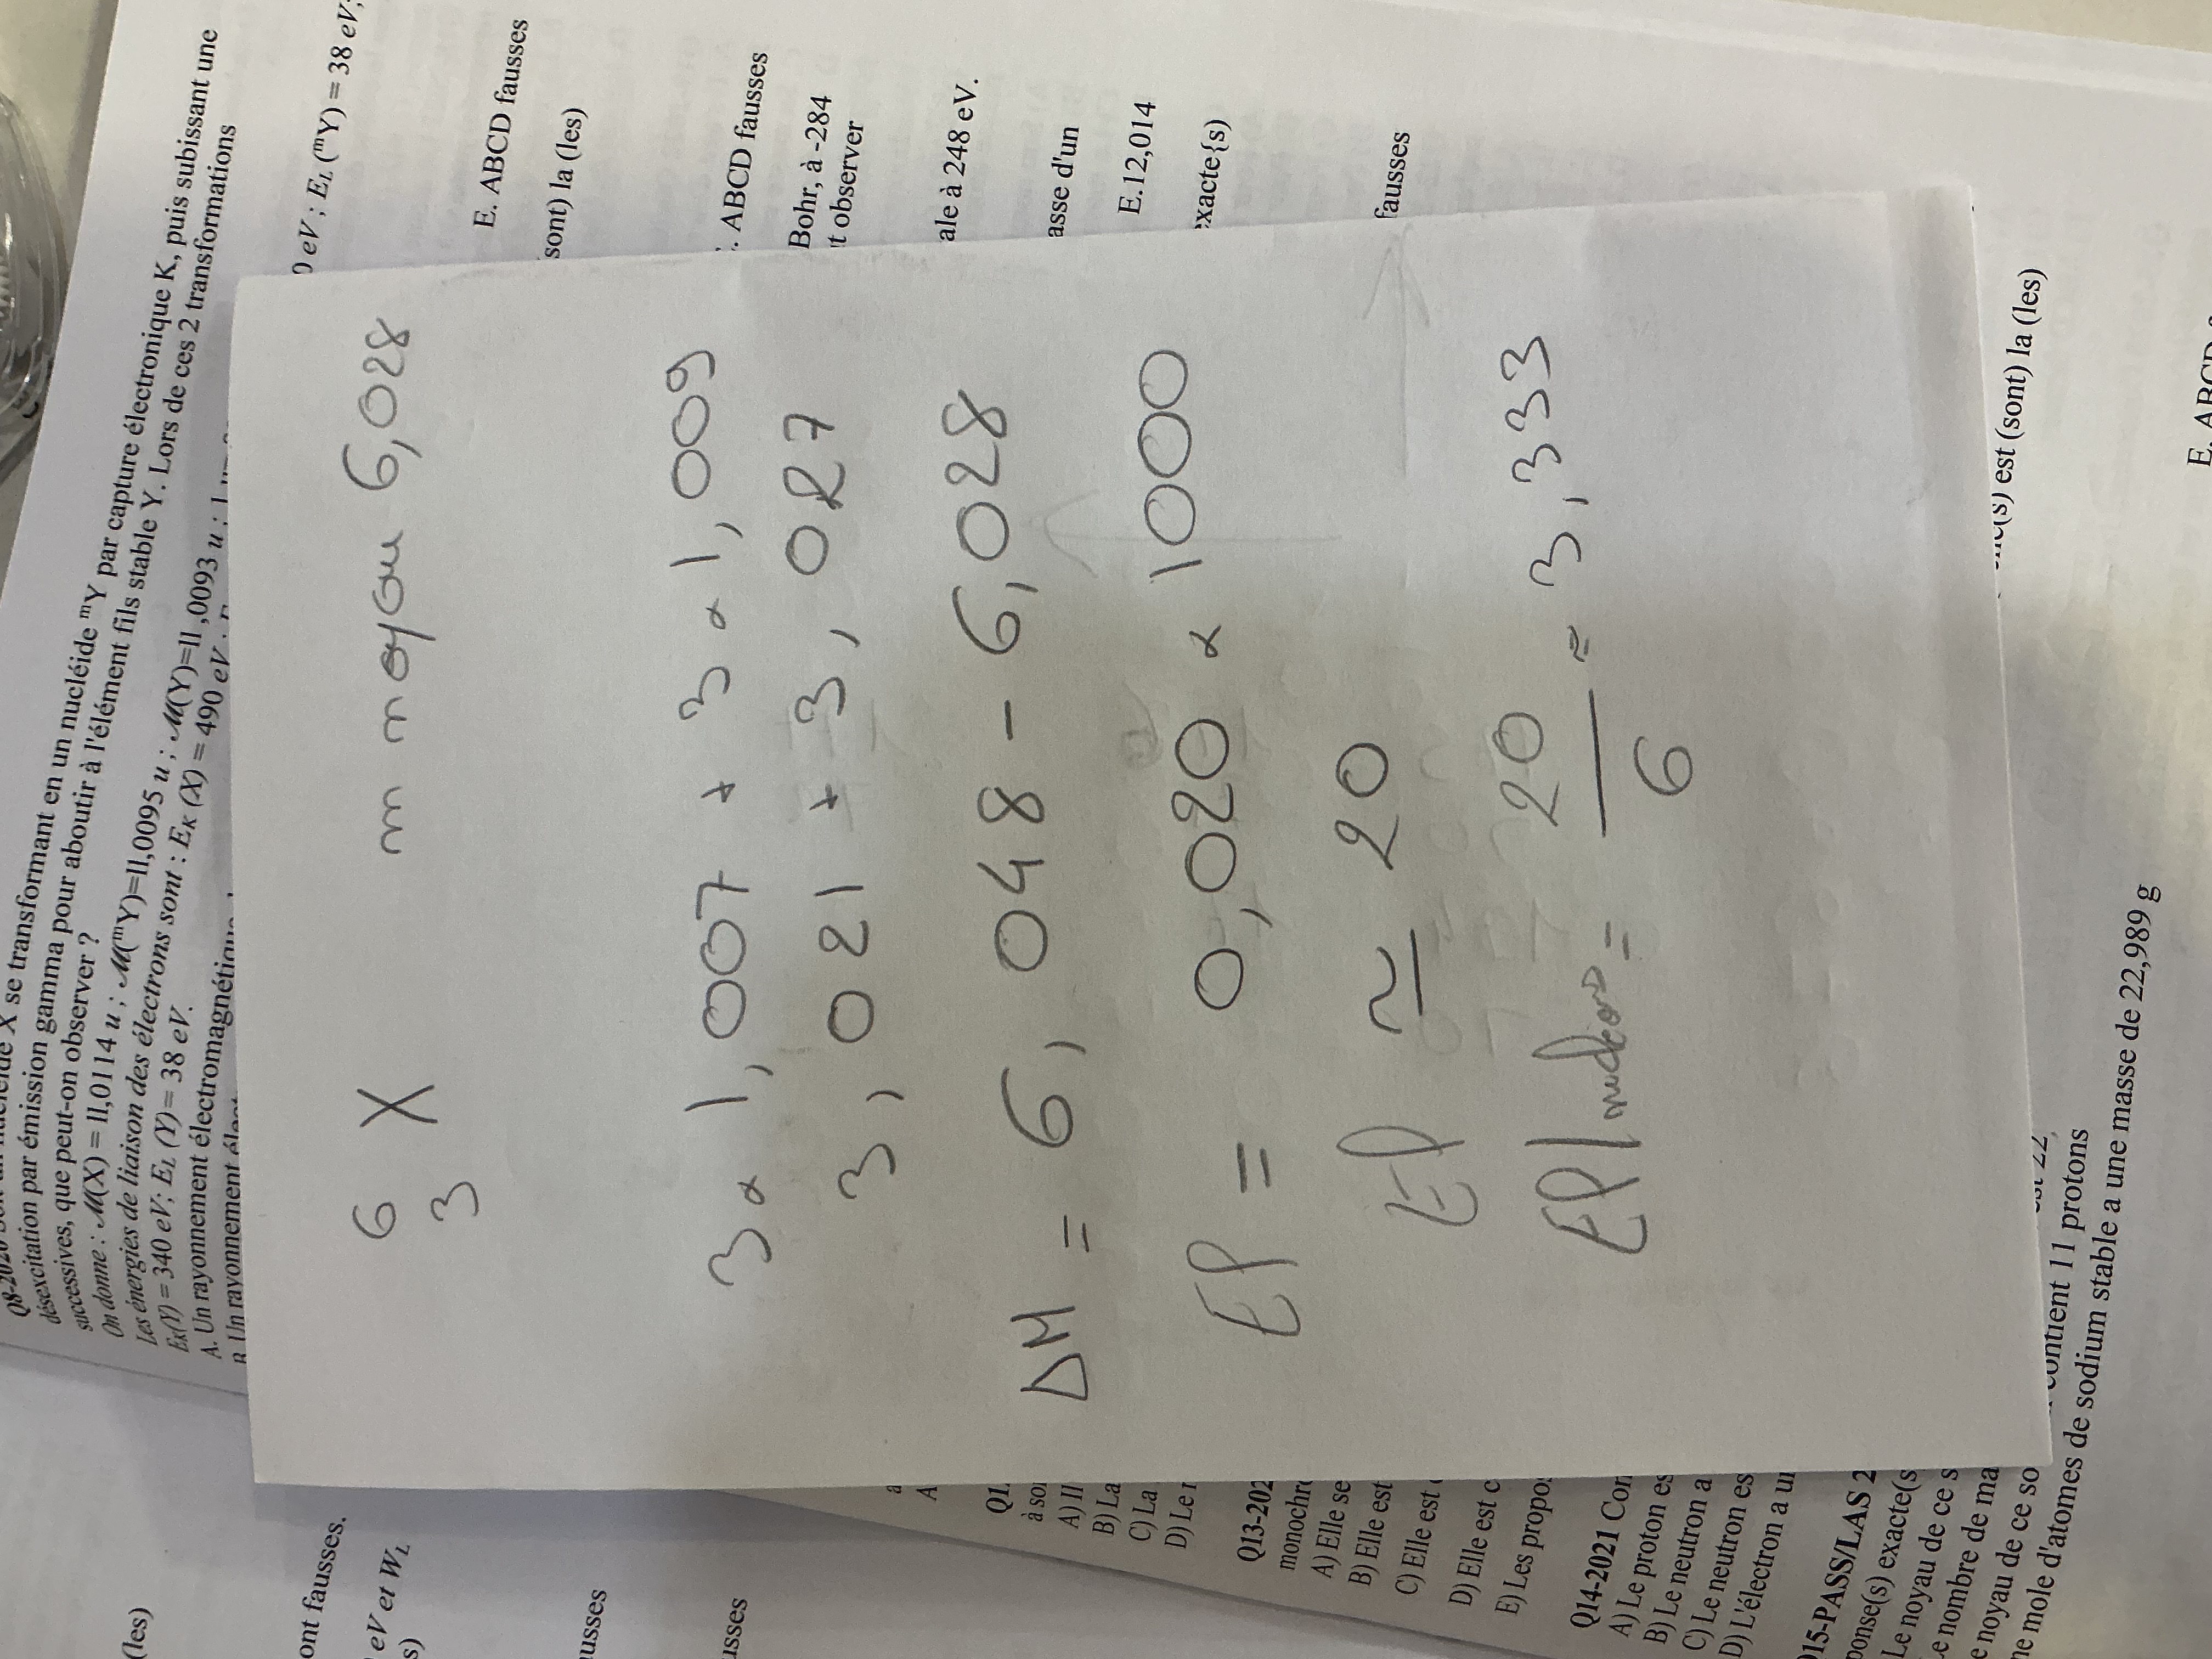 Q8-2020
X se transformant en un nucléide ᵐY par capture électronique K, puis subissant une
désexcitation par émission gamma pour aboutir à l'élément fils stable Y. Lors de ces 2 transformations
successives, que peut-on observer ?
On donne : M(X) = 11,0114 u ; M(ᵐY)=11,0095 u ; M(Y)=11,0093 u ; 1
Les énergies de liaison des électrons sont : E_K (X) = 490 eV ;
0 eV ; E_L (ᵐY) = 38 eV;
E_K(Y) = 340 eV; E_L (Y) = 38 eV.
A. Un rayonnement électromagnétique
B. Un rayonnement
E. ABCD fausses
sont) la (les)
ABCD fausses
Bohr, à -284
t observer
ale à 248 eV.
asse d'un
E.12,014
exacte{s)
fausses
6
3 X m noyau 6,028
3 x 1,007 + 3 x 1,009
3,021 + 3,027
DM = 6,048 - 6,028
El = 0,020 x 1000
El ≃ 20
El/nucléons = 20/6 ≈ 3,333
(les)
ont fausses.
eV et W_L
s)
usses
usses
à so
A) Il
B) La
C) La
D) Le
Q13-202
monochr
A) Elle se
B) Elle est
C) Elle est
D) Elle est c
E) Les propo
Q14-2021 Con
A) Le proton es
B) Le neutron a
C) Le neutron es
D) L'électron a u
Q15-PASS/LAS 2
ponse(s) exacte(s
(s) est (sont) la (les)
Le noyau de ce s
contient 11 protons
e nombre de ma
e noyau de ce so
ne mole d'atomes de sodium stable a une masse de 22,989 g
E. ABCD